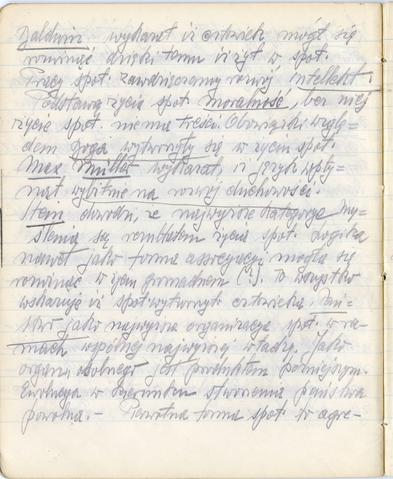 Baldwin wykazał iż człowiek mógł się
rozwinąć dzięki temu iż żył w społ.
Pracy społ. zawdzięczamy rozwój intellekt.
Podstawą życia społ. moralność, bez niej
życie społ. niema treści. Obowiązki wzglę=
dem wytworzyły się w życiu społ.
Max Müller wykazał, iż język wpły=
nął wybitnie na rozwój duchowości.
Stein dowodzi, że najwyższe kategorye my=
ślenia są rezultatem życia społ. Logika
nawet jako forma assocyacyi mogła się
rozwinąć w życiu gromadnem (!). To wszystko
wskazuje iż społ. wytworzyło człowieka. Pań=
stwo jako najwyższa organizacja społ. w ra=
mach wspólnej najwyższej władzy. Jako
organ. osobnego jest produktem późniejszym.
Ewolucya w kierunku stworzenia państwa
powolna. – Pierwotna forma społ. to agre=